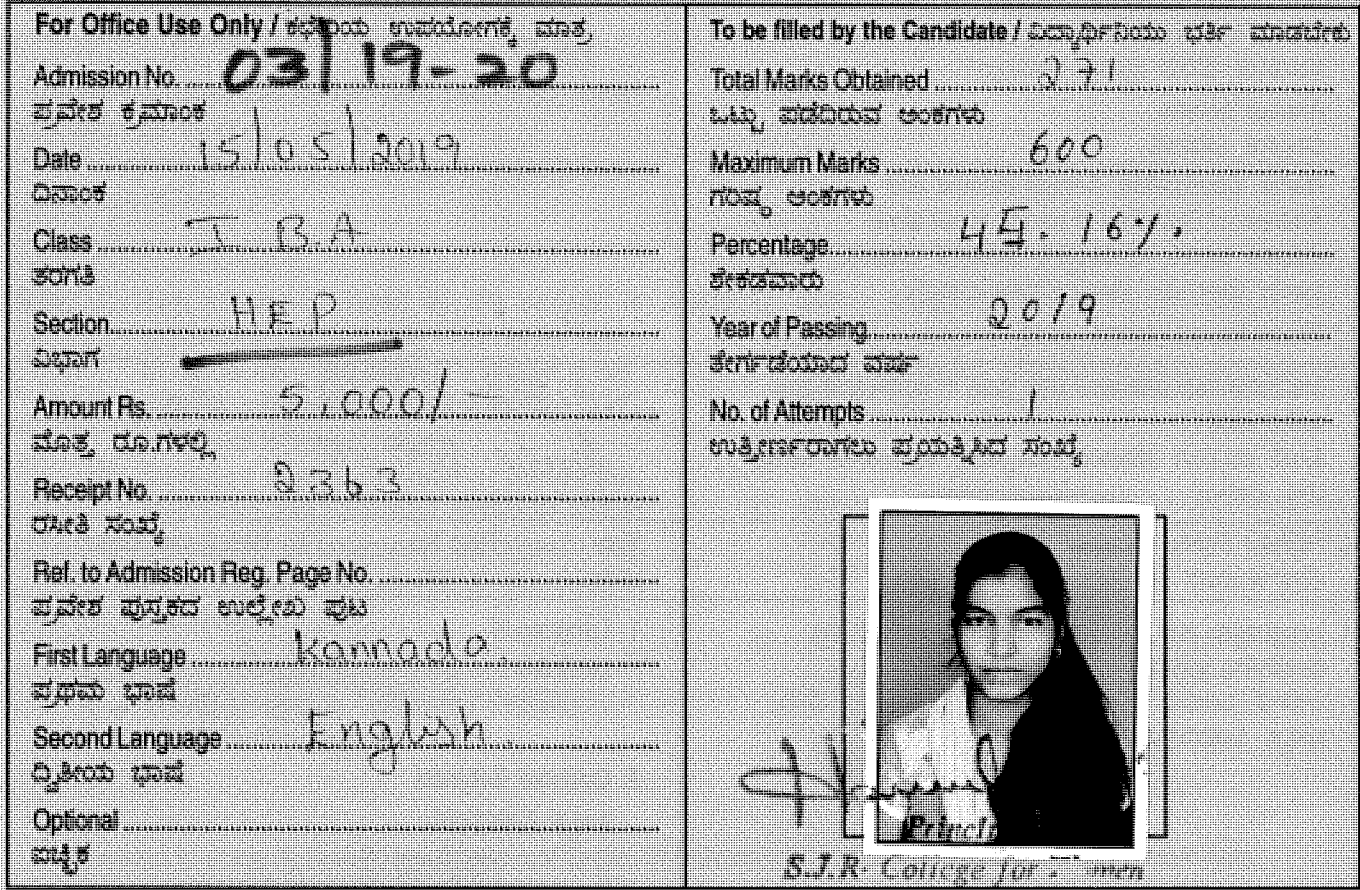 For Office Use Only / ಕಛೇರಿಯ ಉಪಯೋಗಕ್ಕೆ ಮಾತ್ರ
Admission No. 03/19-20
ಪ್ರವೇಶ ಕ್ರಮಾಂಕ
Date 15/05/2019
ದಿನಾಂಕ
Class I B.A
ತರಗತಿ
Section HEP
ವಿಭಾಗ
Amount Rs. 5,000/-
ಮೊತ್ತ ರೂ.ಗಳಲ್ಲಿ
Receipt No. 2363
ರಸೀತಿ ಸಂಖ್ಯೆ
Ref. to Admission Reg. Page No.
ಪ್ರವೇಶ ಪುಸ್ತಕದ ಉಲ್ಲೇಖ ಪುಟ
First Language Kannada
ಪ್ರಥಮ ಭಾಷೆ
Second Language English
ದ್ವಿತೀಯ ಭಾಷೆ
Optional
ಐಚ್ಛಿಕ
To be filled by the Candidate / ವಿದ್ಯಾರ್ಥಿನಿಯು ಭರ್ತಿ ಮಾಡಬೇಕು
Total Marks Obtained 271
ಒಟ್ಟು ಪಡೆದಿರುವ ಅಂಕಗಳು
Maximum Marks 600
ಗರಿಷ್ಠ ಅಂಕಗಳು
Percentage 45.16%.
ಶೇಕಡವಾರು
Year of Passing 2019
ತೇರ್ಗಡೆಯಾದ ವರ್ಷ
No. of Attempts 1
ಉತ್ತೀರ್ಣರಾಗಲು ಪ್ರಯತ್ನಿಸಿದ ಸಂಖ್ಯೆ
Princi
S.J.R. College for men